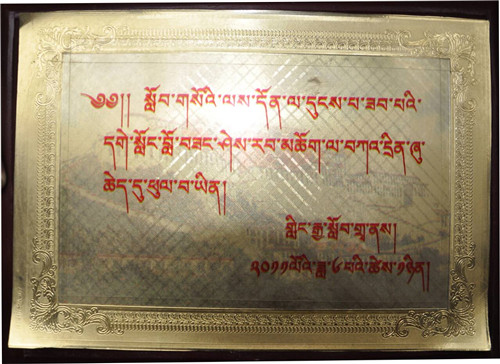 ༄༅།། སློབ་གསོའི་ལས་དོན་ལ་དུངས་པ་ཟབ་པའི་
དགེ་སློང་བློ་བཟང་ཤེས་རབ་མཆོག་ལ་བཀའ་དྲིན་ཞུ་
ཆེད་དུ་ཕུལ་བ་ཡིན།
གླིང་རྒྱ་སློབ་གྲྭ་ནས།
༢༠༡༡ལོའི་ཟླ་༦་པའི་ཚེས་༡ཉིན།